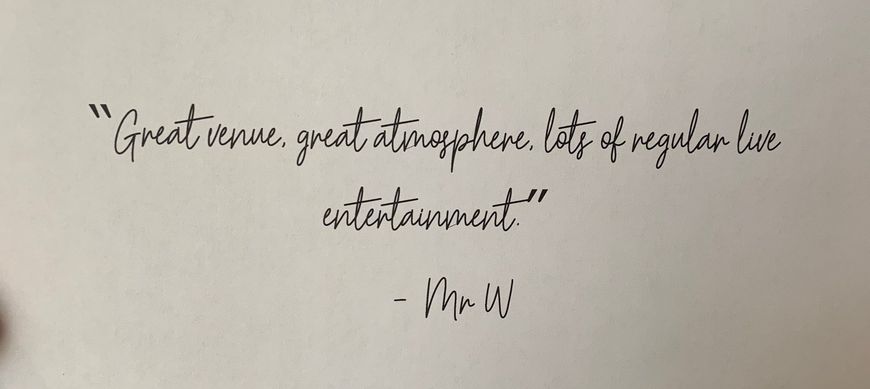 "Great venue, great atmosphere, lots of regular live
entertainment."
- Mr W